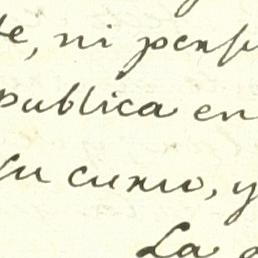 te, ni pensu
publica en
su curso, y
La